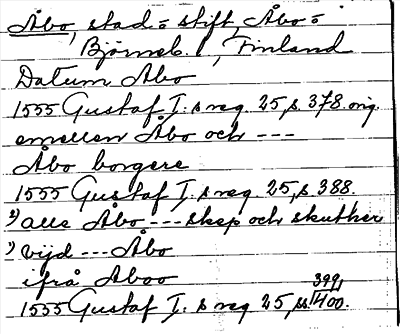 Åbo, stad = stift, Åbo =
Björneb. l., Finland
Datum Åbo
1555 Gustaf I:s reg. 25, s. 378. orig.
emellen Åbo och ---
Åbo borgere
1555 Gustaf I:s reg. 25, s. 388.
2) alle Åbo --- skep och skuther
1) vijd --- Åbo
ifrå Aboo
1555 Gustaf I:s reg 25, ss. 399, 400.